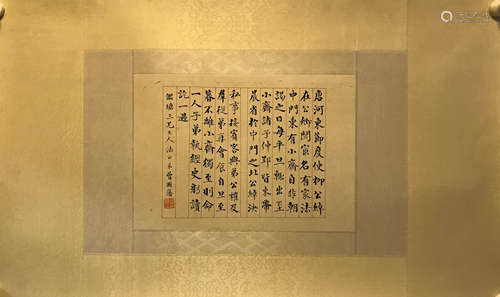 唐河東節度使柳公綽
在公卿間㝡名有家法
中門東有小齋自非朝
謁之日每平旦輒出至
小齋諸子仲郢皆束帶
晨省於中門之北公綽決
私事接賓客與弟公權及
羣從弟再會食自旦至
暮不離小齋燭至則命
一人子弟執經史躬讀
訖一過
塘三兄大人法正弟曾國藩